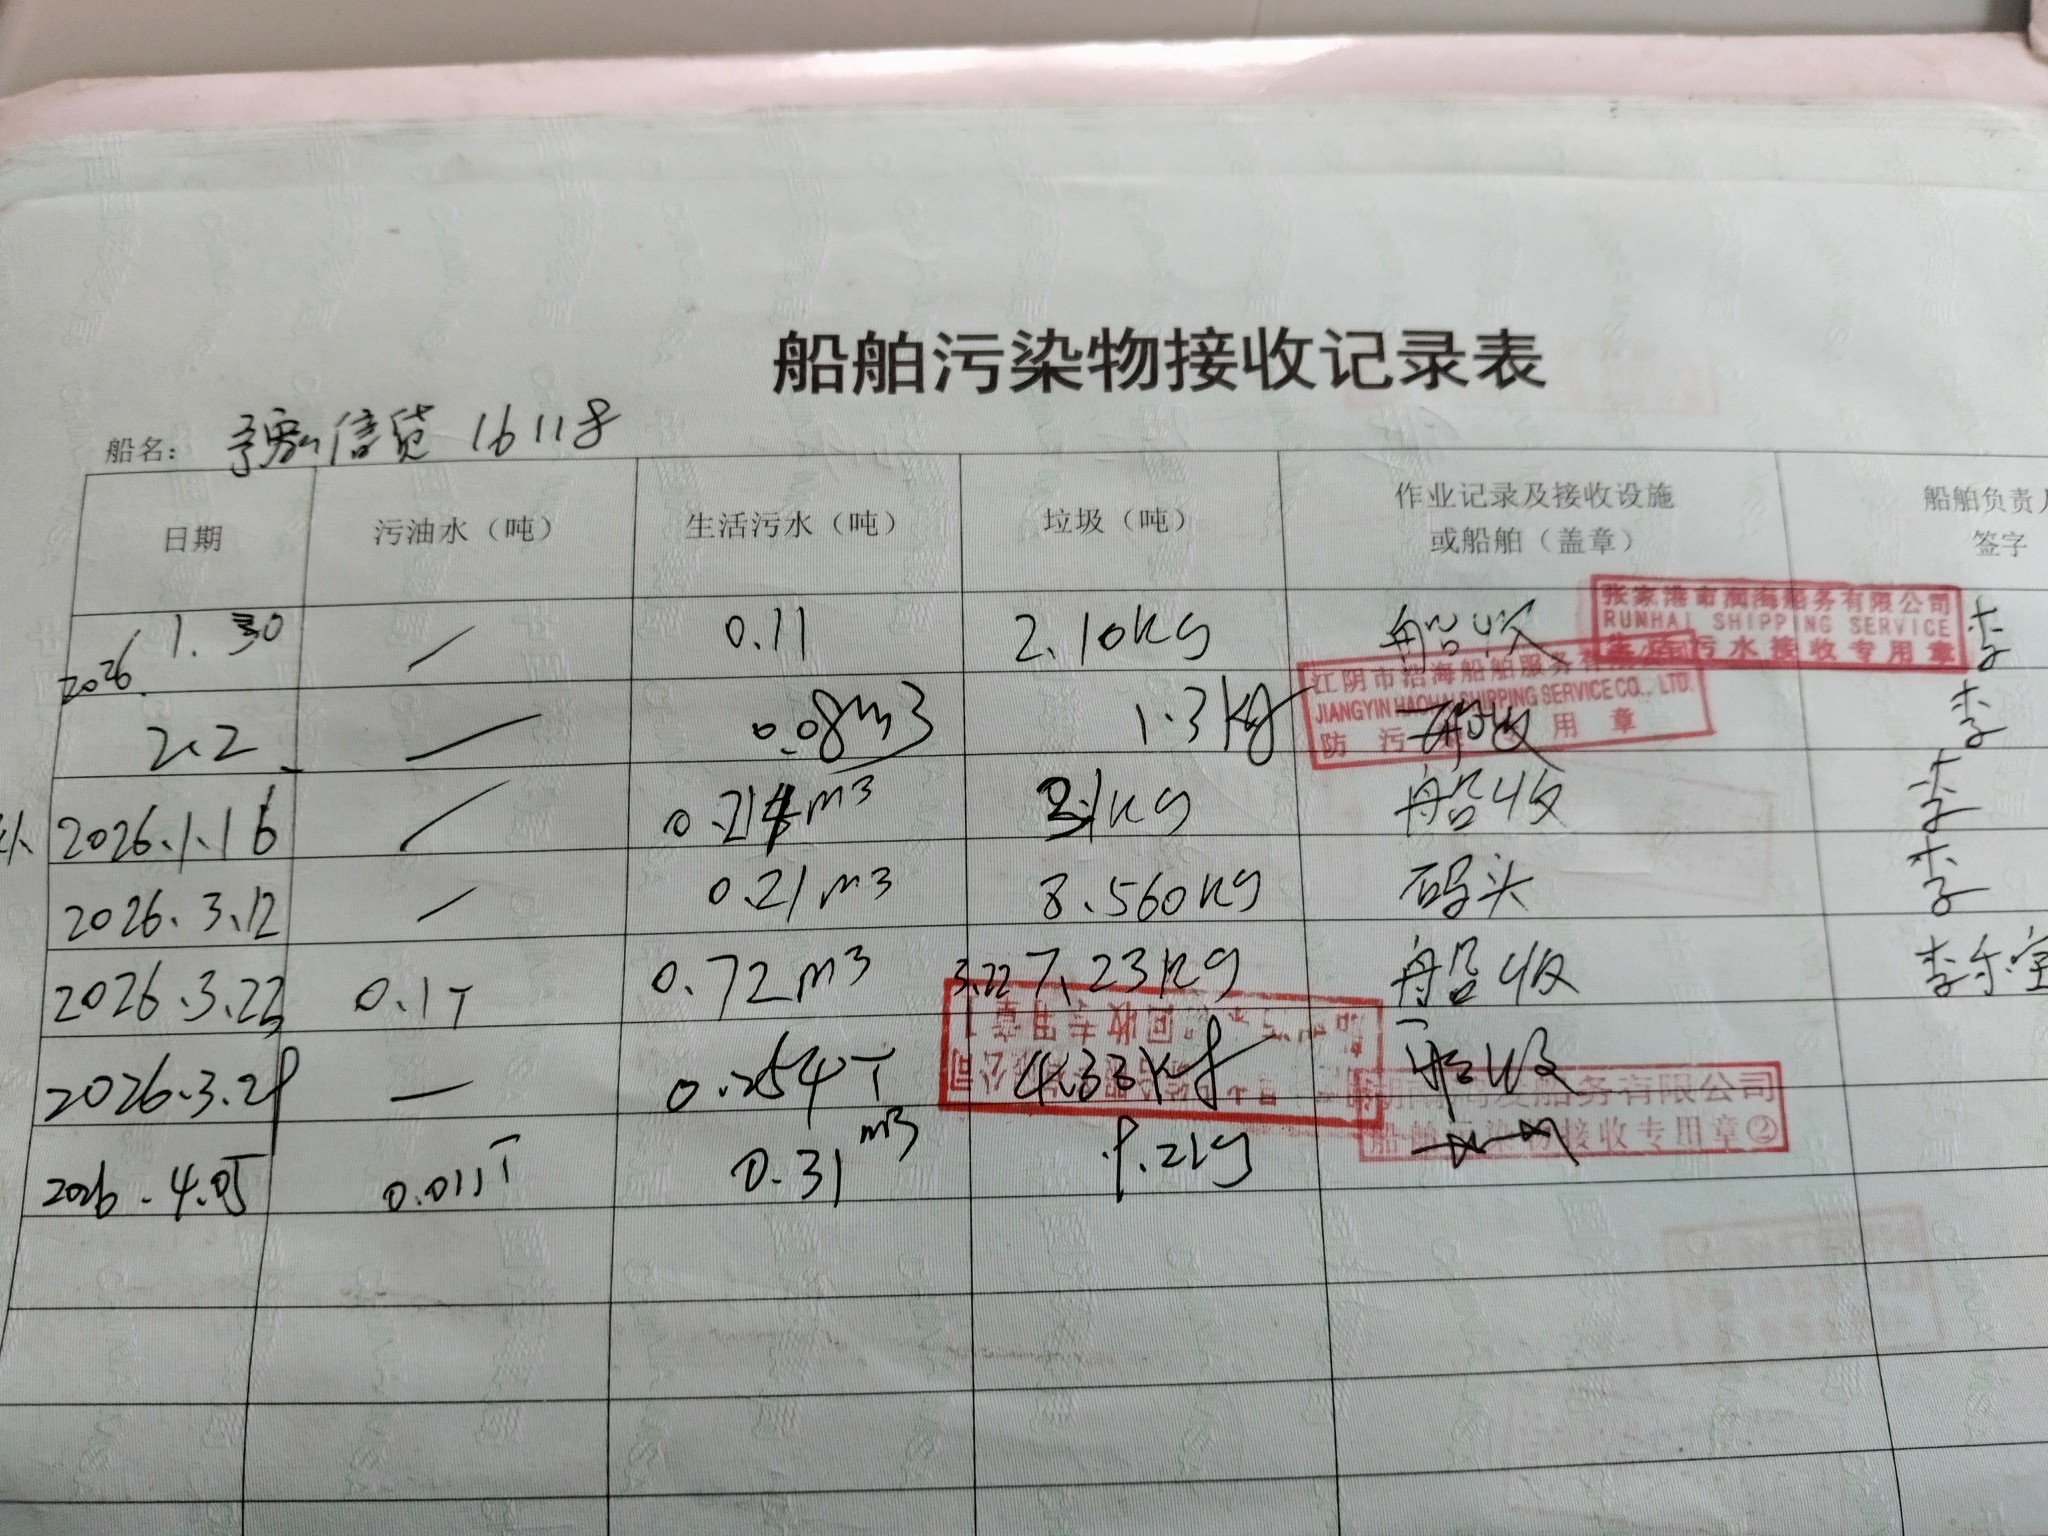 船舶污染物接收记录表
船名： 豫信货 16118
日期 污油水（吨） 生活污水（吨） 垃圾（吨） 作业记录及接收设施或船舶（盖章） 船舶负责人签字
2026. 1.30 / 0.11 2.10kg 船收 李
张家港市润海船务有限公司
RUNHAI SHIPPING SERVICE
生活污水接收专用章
2.2 — 0.08m3 1.3kg 船收 李
江阴市浩海船舶服务有限公司
JIANGYIN HAOHAI SHIPPING SERVICE CO., LTD.
防污 用章
补 2026.1.16 / 0.21m3 3.1kg 船收 李
2026.3.12 / 0.21m3 8.560kg 码头 李
2026.3.22 0.1T 0.72m3 3.22 7.23kg 船收 李
2026.3.28 — 0.254T 4.33kg 船收
船务有限公司
船舶污染物接收专用章②
2026.4.05 0.011T 0.31m3